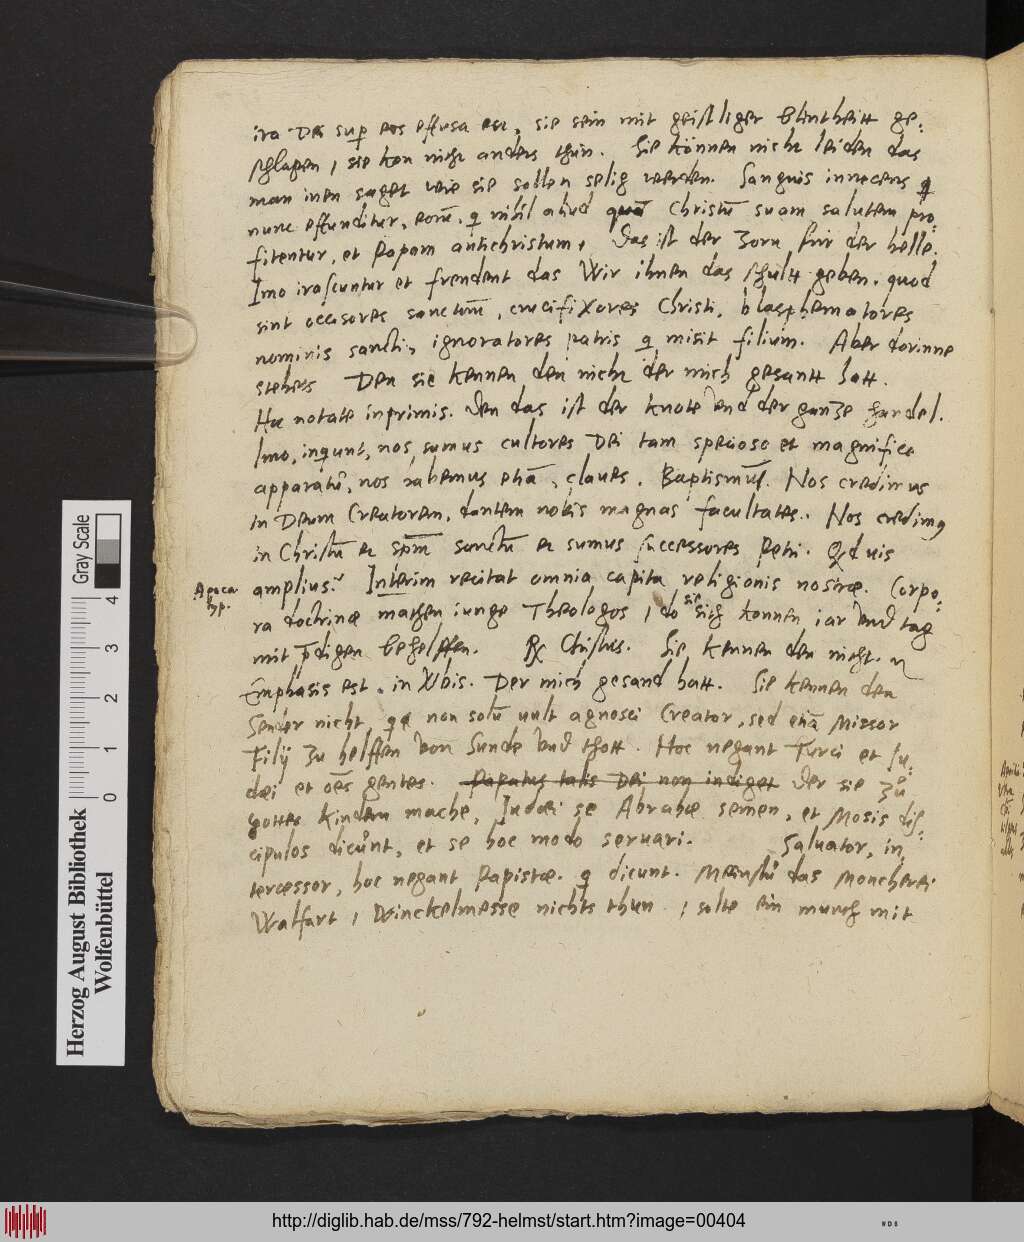 ira Dei sup eos effusa est, sie sein mit geistliger blintheitt ge:
schlagen, sie kon nicht anders thun. Sie können nicht leiden das
man inen saget wie sie sollen selig werden. Sanguis innocens
nunc effunditur, eorũ, q nihil aliud quã Christũ suam salutem pro
fitentur, et Papam antichristum, Das ist der Zorn fur der helle.
Imo irascuntur et frendent das Wir ihnen das schult geben. quod
sint occisores sanctorũ, crucifixores Christi, blasphematores
nominis sancti, ignoratores patris q misit filium. Aber dorinne
stehets Den sie kennen den nicht der mich gesantt hott.
Hic notate inprimis. Den das ist der knote und der ganze handel.
Imo, inquunt, nos sumus cultores Dei tam specioso et magnifico
apparatu, nos habemus etiã, claves, Baptismũ. Nos credimus
in Deum Creatorem, dantem nobis magnas facultates. Nos credimq
in Christũ et spm sanctũ et sumus successores Petri. Qd uis
amplius? Interim recitat omnia capita religionis nostræ. Corpo:
Apoca
lyp.
ra doctrinæ machen iunge Theologos, do sie sich konnen iar und tag
mit pdigen behelffen. Rx Christus. Sie kennen den nicht.
Emphasis est, in Verbis. Der mich gesand hatt. Sie kennen den
Sender nicht, qa non solũ uult agnosci Creator, sed etiã Missor
Filij zu helffen von Sunde und thott. Hoc negant Turci et Iu:
dæi et oẽs gentes. Papatus talis Dei non indiget Der sie zu
gottes kindern mache, Iudæi se Abrahæ semen, et Mosis dis:
cipulos dicunt, et se hoc modo seruari. Saluator, in,
tercessor, hoc negant Papistæ. q dicunt. Meinstu das Moncherei
Walfart, Winckelmesse nichts thun, solte ein munch mit
Herzog August Bibliothek
Wolfenbüttel
Gray Scale
0 1 2 3 4
http://diglib.hab.de/mss/792-helmst/start.htm?image=00404